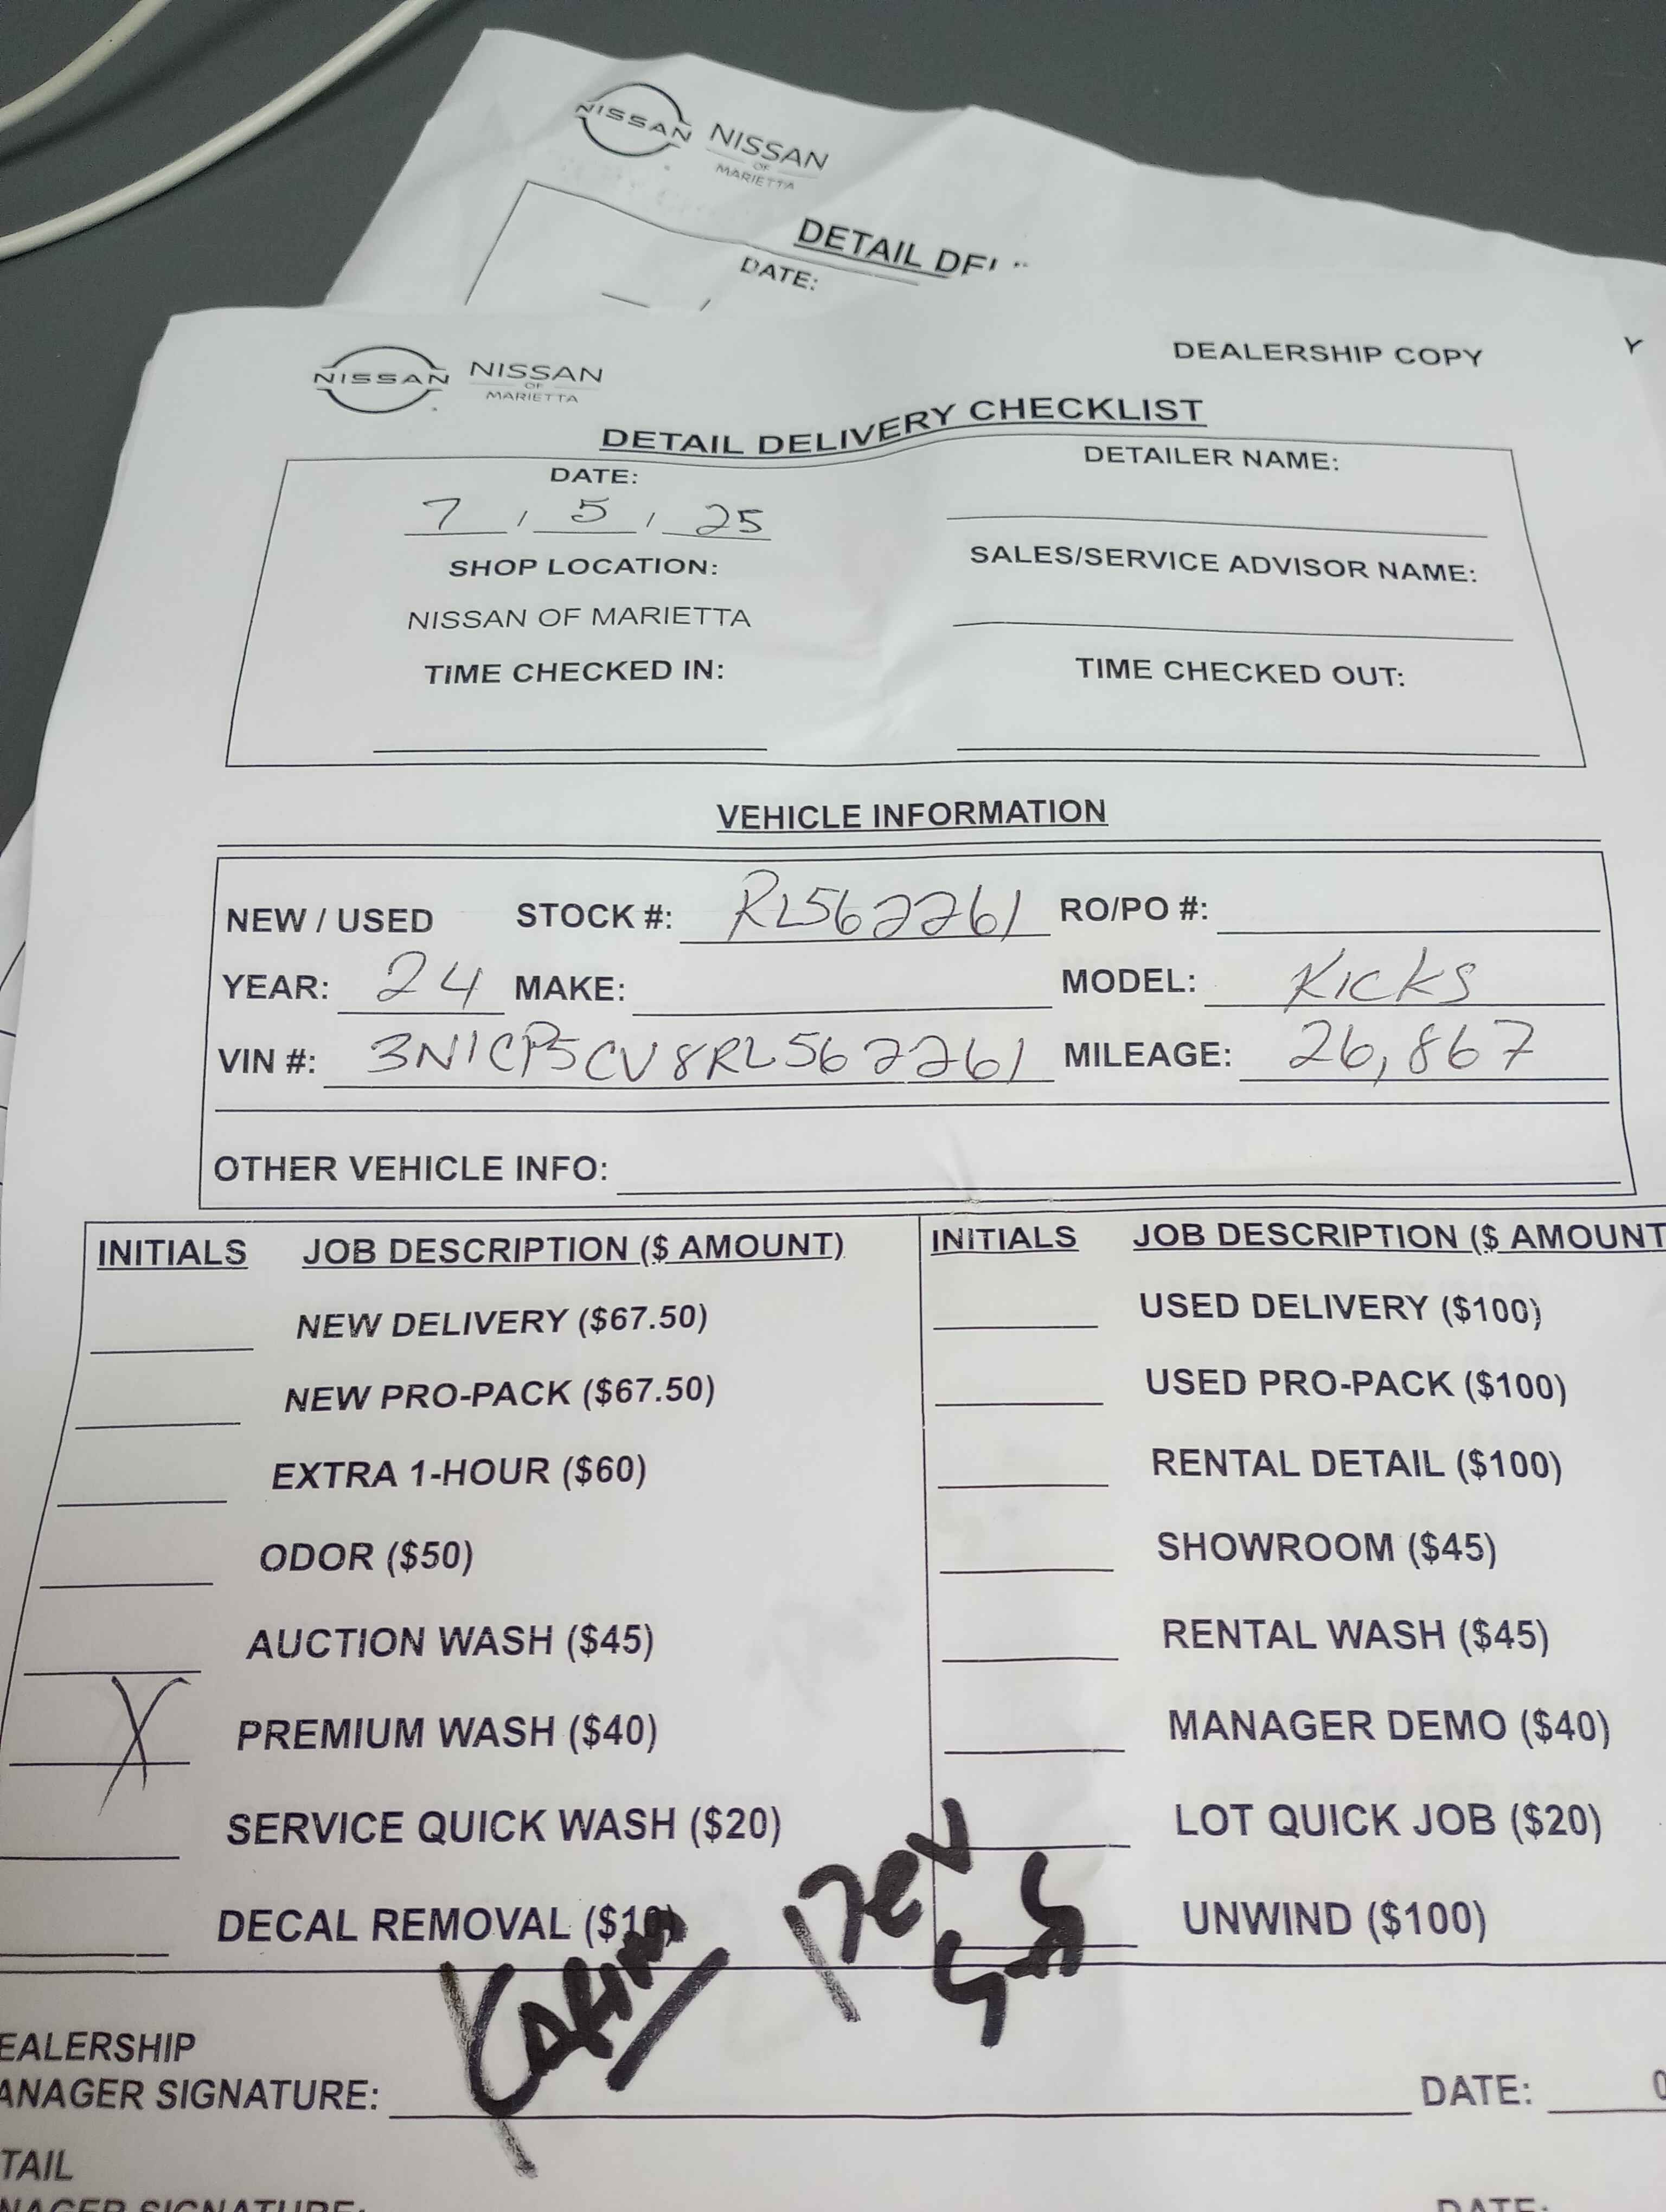 NISSAN NISSAN
OF
MARIETTA
DETAIL
DATE:
DEALERSHIP COPY Y
NISSAN NISSAN
OF
MARIETTA
DETAIL DELIVERY CHECKLIST
DATE: DETAILER NAME:
7 / 5 / 25
SHOP LOCATION: SALES/SERVICE ADVISOR NAME:
NISSAN OF MARIETTA
TIME CHECKED IN: TIME CHECKED OUT:
VEHICLE INFORMATION
NEW / USED STOCK #: RL562261 RO/PO #:
YEAR: 24 MAKE: MODEL: KICKS
VIN #: 3N1CP5CV8RL562261 MILEAGE: 26,867
OTHER VEHICLE INFO:
INITIALS JOB DESCRIPTION ($ AMOUNT) INITIALS JOB DESCRIPTION ($ AMOUNT
NEW DELIVERY ($67.50) USED DELIVERY ($100)
NEW PRO-PACK ($67.50) USED PRO-PACK ($100)
EXTRA 1-HOUR ($60) RENTAL DETAIL ($100)
ODOR ($50) SHOWROOM ($45)
AUCTION WASH ($45) RENTAL WASH ($45)
X PREMIUM WASH ($40) MANAGER DEMO ($40)
SERVICE QUICK WASH ($20) LOT QUICK JOB ($20)
DECAL REMOVAL ($10) UNWIND ($100)
EALERSHIP
ANAGER SIGNATURE: DATE: 0
TAIL
NAGER SIGNATURE: DATE: